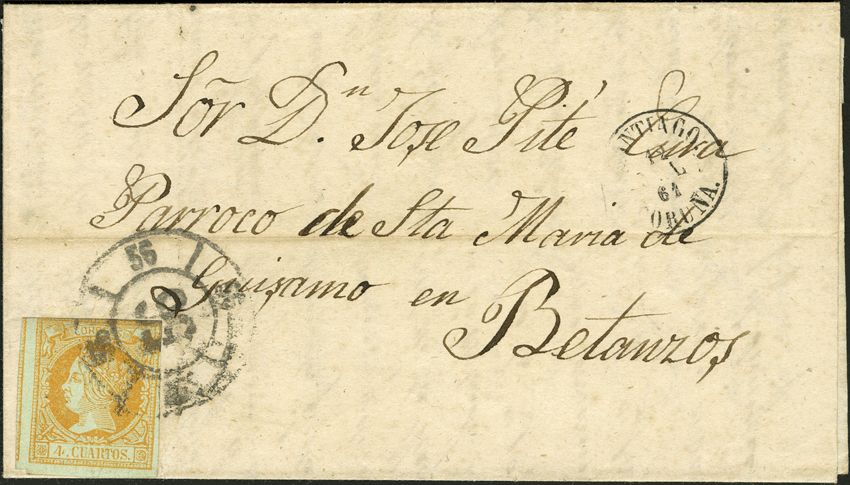 Sõr Dn Jose Pité Cura
Parroco de Sta Maria de
Guisamo en
Betanzos
NTIAGO
61
ORUÑA.
55
4 CUARTOS.